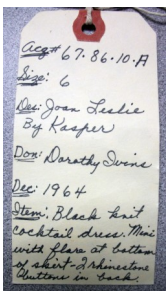 Acq# 67.86.10.A
Size: 6
Des: Joan Leslie
By Kasper
Don: Dorothy Ivins
Dec: 1964
Item: Black knit
cocktail dress. Mini
with flare at bottom
of skirt - 2 rhinestone
buttons in back.